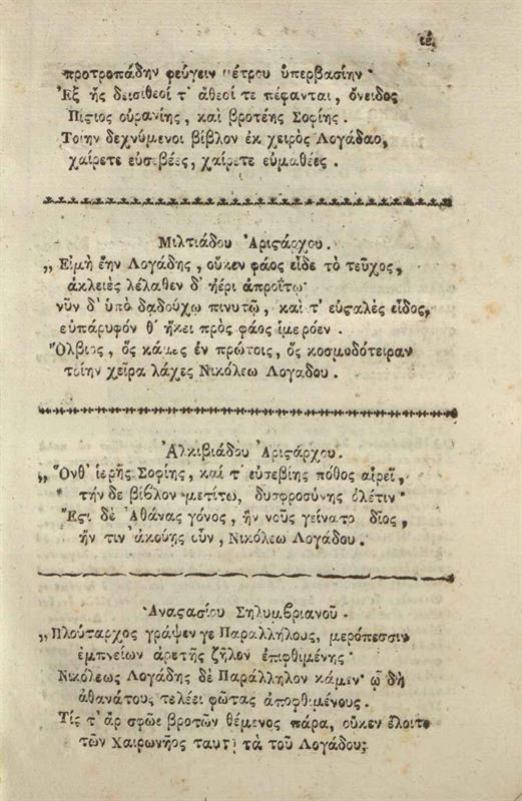 ιέ.
προτροπάδην φεύγειν μέτρου ὑπερβασίην·
Ἐξ ἧς δεισιθεοί τ' ἀθεοί τε πέφανται, ὄνειδος
Πίϛιος οὐρανίης, καὶ βροτέης Σοφίης.
Τοίην δεχνύμενοι βίβλον ἐκ χειρὸς Λογάδαο,
χαίρετε εὐσεβέες, χαίρετε εὐμαθέες.
Μιλτιάδου Ἀριϛάρχου.
„ Εἰμὴ ἔην Λογάδης, οὔκεν φάος εἶδε τὸ τεῦχος,
ἀκλειὲς λέλαθεν δ' ἠέρι ἀπροΐτῳ·
νῦν δ' ὑπὸ δᾳδούχῳ πινυτῷ, καί τ' εὐϛαλὲς εἶδος,
εὐπάρυφόν θ' ἥκει πρὸς φάος ἱμερόεν.
Ὄλβιος, ὃς κάμες ἐν πρώτοις, ὃς κοσμοδότειραν
τοίην χεῖρα λάχες Νικόλεω Λογάδου.
Ἀλκιβιάδου Ἀριϛάρχου.
„ Ὅνθ' ἱερῆς Σοφίης, καί τ' εὐσεβίης πόθος αἱρεῖ,
τήν δε βίβλον μετίτω, δυσφροσύνης ὀλέτιν·
Ἔϛι δὲ Ἀθάνας γόνος, ἣν νοῦς γείνατο δῖος,
ἥν τιν' ἀκούῃς οὖν, Νικόλεω Λογάδου.
Ἀναϛασίου Σηλυμβριανοῦ.
„ Πλούταρχος γράψεν γε Παραλλήλους, μερόπεσσιν
ἐμπνείων ἀρετῆς ζῆλον ἐπιφθιμένης·
Νικόλεως Λογάδης δὲ Παράλληλον κάμεν· ᾧ δὴ
ἀθανάτους τελέει φῶτας ἀποφθιμένους.
Τίς τ' ἂρ σφῶε βροτῶν θέμενος πάρα, οὔκεν ἕλοιτο
τῶν Χαιρωνῆος ταυτὶ τὰ τοῦ Λογάδου;